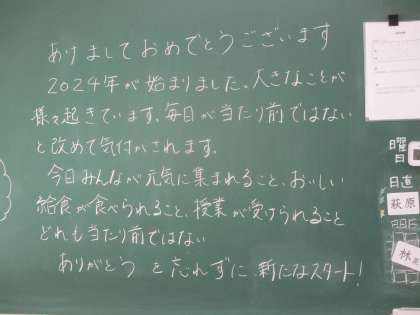 あけましておめでとうございます
2024年が始まりました。大きなことが
様々起きています。毎日が当たり前ではない
と改めて気付かされます。
今日みんなが元気に集まれること、おいしい
給食が食べられること、授業が受けられること
どれも当たり前ではない
ありがとう を忘れずに 新たなスタート！
曜日
日直
萩原
林